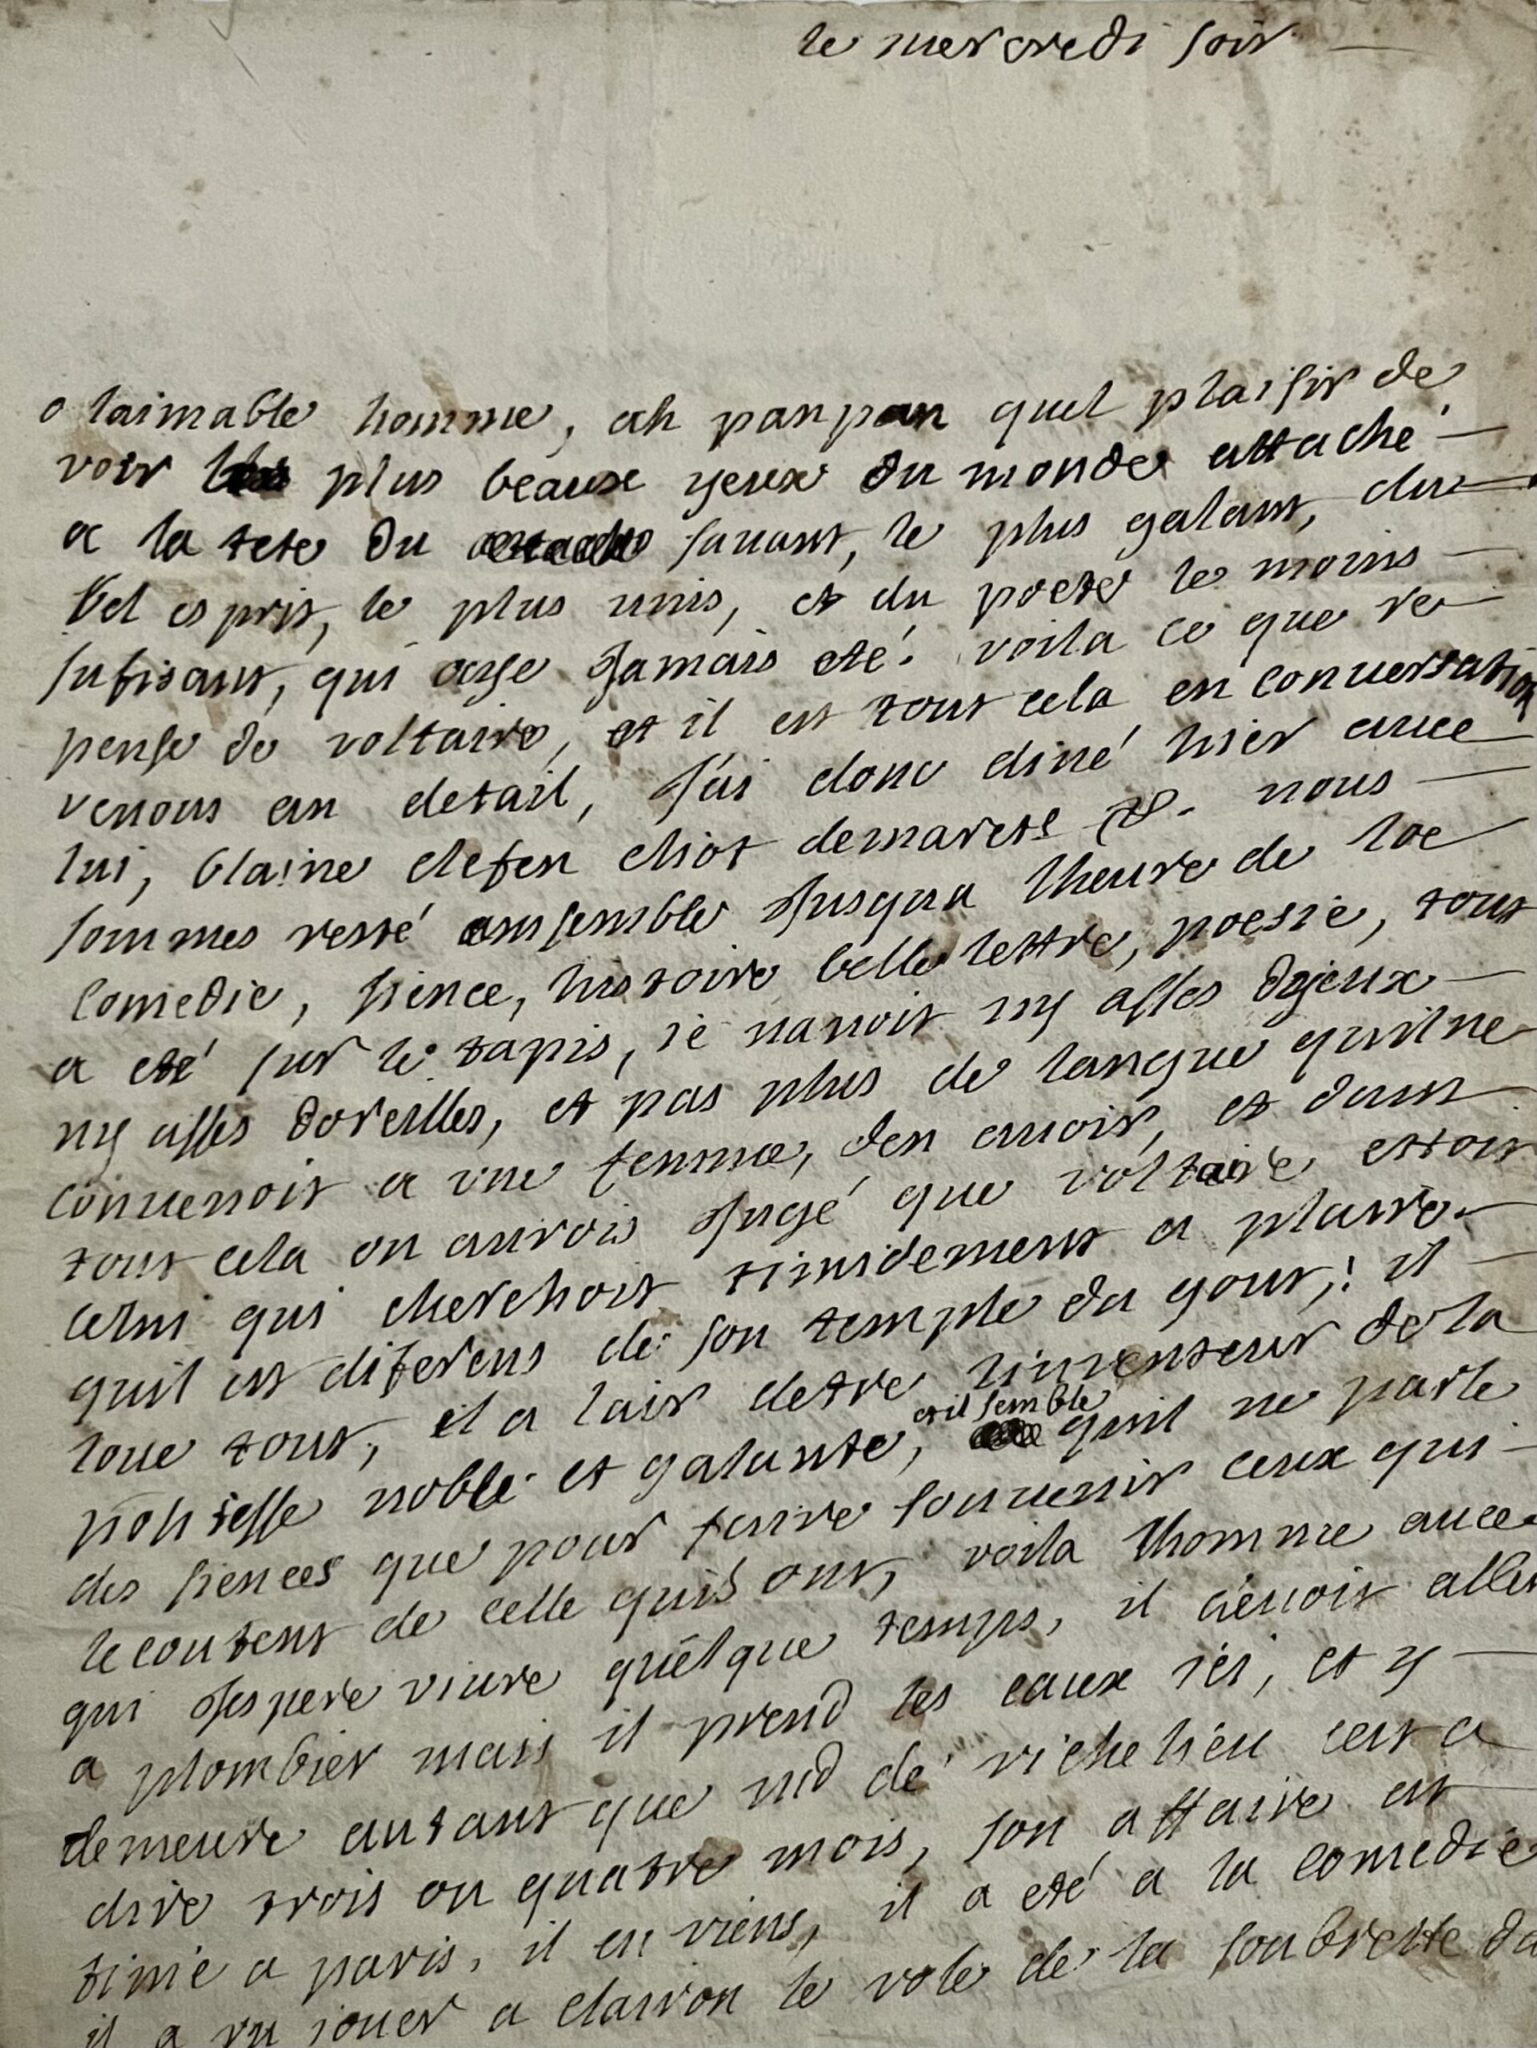 le mercredi soir
o laimable homme, ah panpan quel plaisir de
voir les plus beaux yeux du monde attaché
a la tete du savant, le plus galant, du
bel esprit, le plus unis, et du poete le moins
sufisant, qui aye jamais eté. voila ce que je
pense de voltaire, et il est tout cela en conversation
venons au detail, j'ai donc diné hier avec
lui, blaine clefen chiot demarets &. nous
sommes resté ensemble jusqua lheure de la
comedie, sience, histoire belle lettre, poesie, tout
a eté sur le tapis, je navois ny asses dyeux
ny asses doreilles, et pas plus de langue quil ne
convenoit a une femme, den avoir, et dans
tout cela on auroit jugé que voltaire estoit
celui qui cherchoit timidement a plaire.
quil est diferens de son temple du gout,! il
loue tout, il a lair detre linventeur de la
politesse noble et galante, et il semble quil ne parle
des siences que pour faire souvenir ceux qui
lecoutent de celle quils ont, voila lhomme avec
qui jespere vivre quelque temps, il devoit aller
a plombier mais il prend les eaux ici, et y
demeure autant que md de richelieu cest a
dire trois ou quatre mois, son affaire est
finie a paris, il en viens, il a eté a la comedie
il a vu jouer a clairon le role de la soubrette du